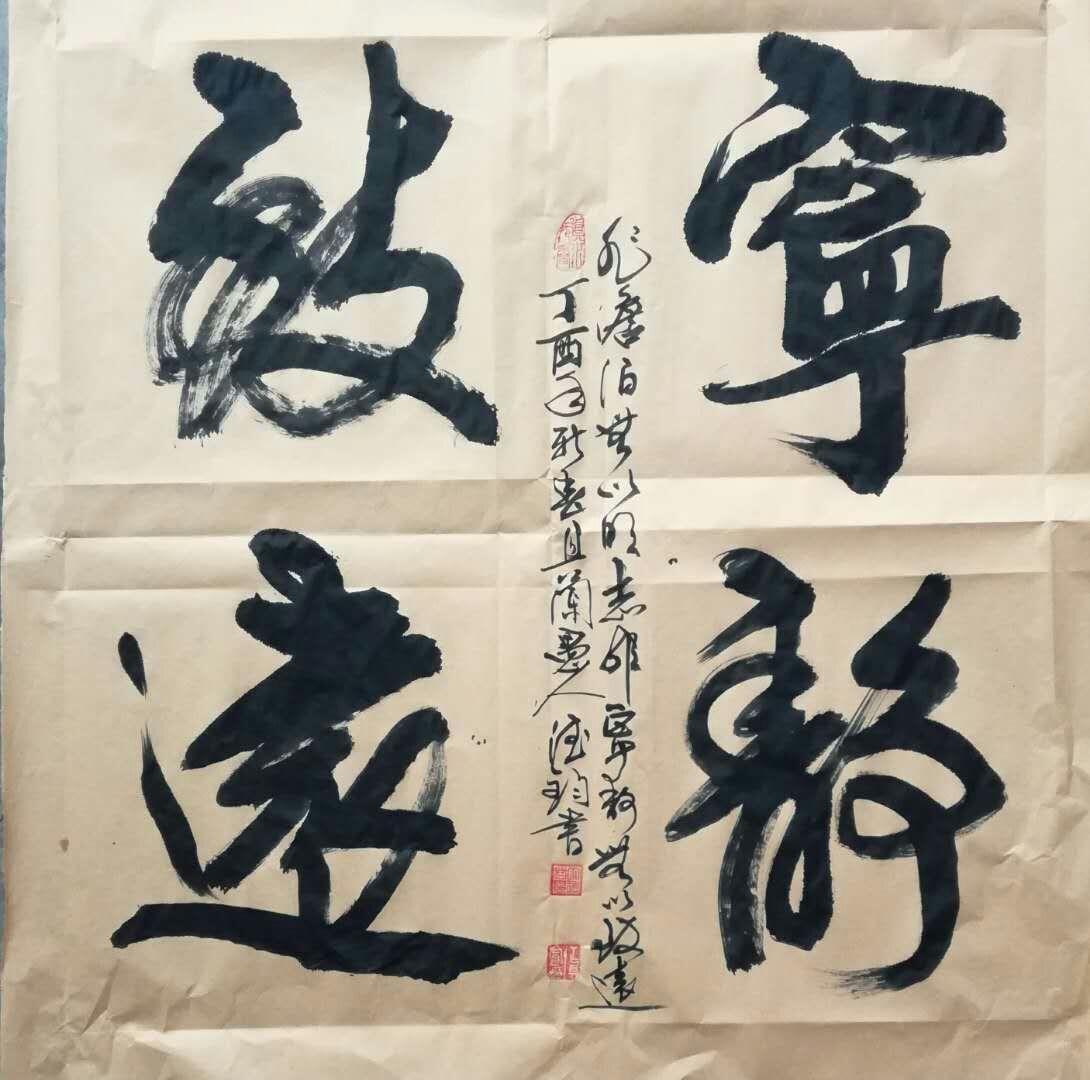 寧靜
致遠
非澹泊無以明志非寧靜無以致遠
丁酉年新春且蘭愚人德均書